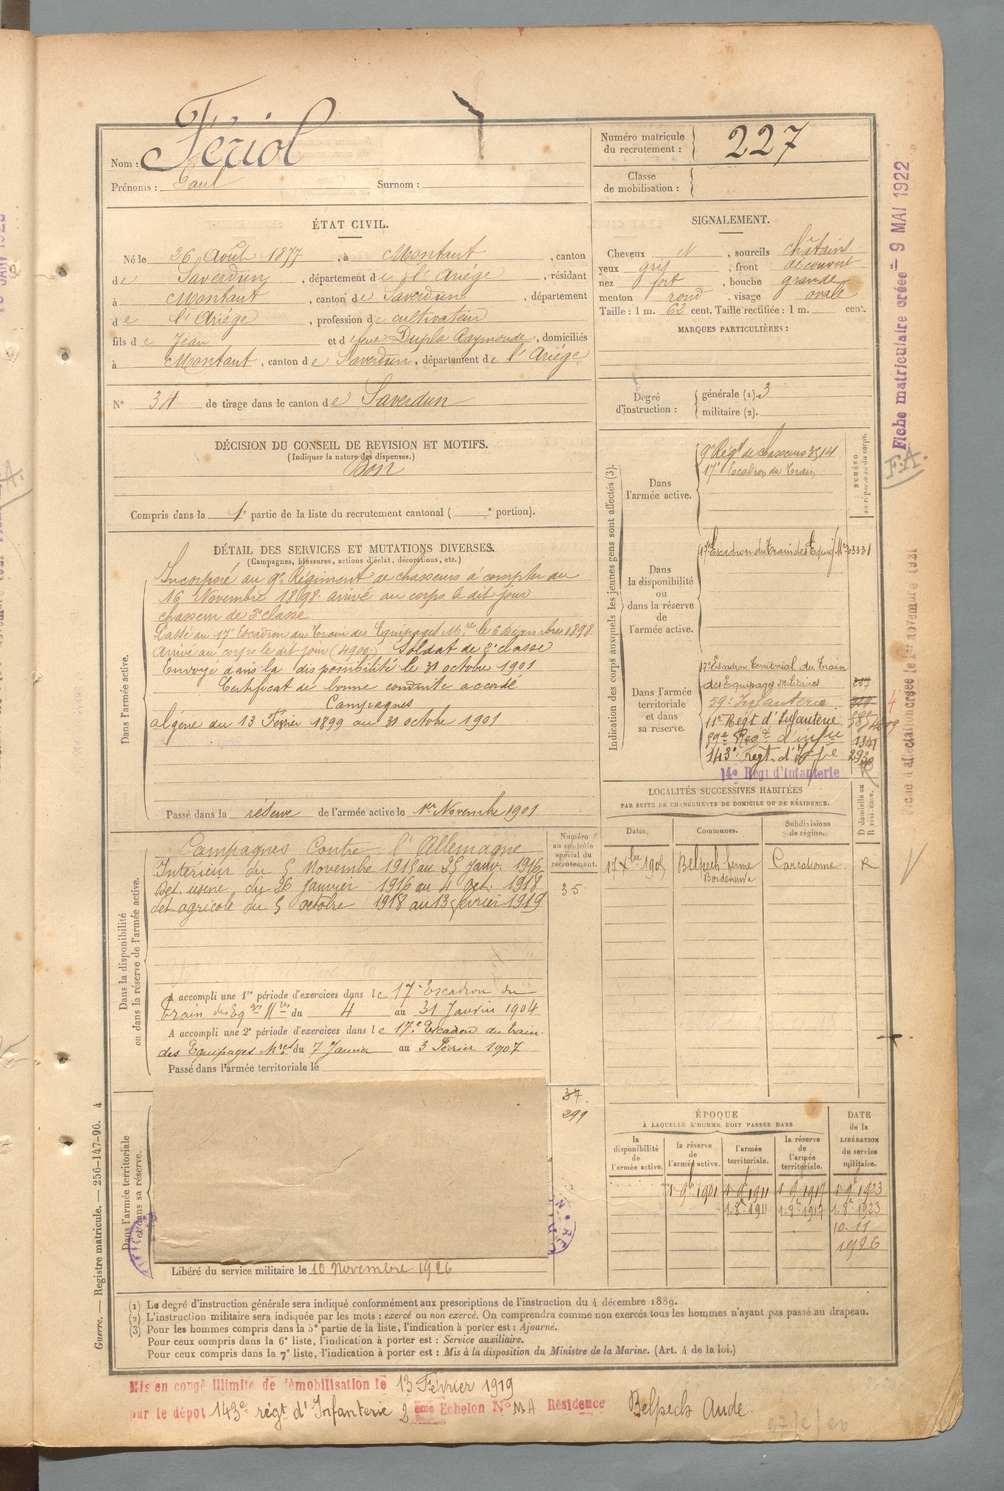 Nom : Fériol
Prénoms : Paul Surnom :
Numéro matricule du recrutement : 227
Classe de mobilisation :
ÉTAT CIVIL.
Né le 26 Août 1877, à Montaut, canton
de Saverdun, département de l'Ariége, résidant
à Montaut, canton de Saverdun, département
de l'Ariége, profession de cultivateur
fils de Jean et de Dupla Raymonde, domiciliés
à Montaut, canton de Saverdun, département de l'Ariége
N° 34 de tirage dans le canton de Saverdun
SIGNALEMENT.
Cheveux N, sourcils châtains
yeux gris, front découvert
nez fort, bouche grande
menton rond, visage ovale
Taille : 1 m. 62 cent. Taille rectifiée : 1 m. cent.
MARQUES PARTICULIÈRES :
Degré d'instruction : générale (1). 3
militaire (2).
DÉCISION DU CONSEIL DE REVISION ET MOTIFS.
(Indiquer la nature des dispenses.)
Bon
Compris dans la 1e partie de la liste du recrutement cantonal ( e portion).
DÉTAIL DES SERVICES ET MUTATIONS DIVERSES.
(Campagnes, blessures, actions d'éclat, décorations, etc.)
Dans l'armée active.
Incorporé au 9e Régiment de chasseurs à compter du
16 Novembre 1898 arrivé au corps le dit jour
chasseur de 2e classe
Passé au 17e Escadron du Train des Equipages Mres le 6 décembre 1898.
Arrivé au corps le dit jour (4909). Soldat de 2e classe
Envoyé dans la disponibilité le 31 octobre 1901
Certificat de bonne conduite accordé
Campagnes
Algérie du 13 Février 1899 au 31 octobre 1901
Passé dans la réserve de l'armée active le 1er Novembre 1901
Indication des corps auxquels les jeunes gens sont affectés (3).
NUMÉRO au répertoire du corps.
Dans l'armée active.
9e Régt de chasseurs 3514
17e Escadron du Train
Dans la disponibilité ou dans la réserve de l'armée active.
17e Escadron du Train des Equip. Mres 3331
Dans l'armée territoriale et dans sa réserve.
17e Escadron Territorial du Train
des Equipages militaires
59e Infanterie
11e Régt d'Infanterie
143e régt d'Infie
14e Régt d'Infanterie
LOCALITÉS SUCCESSIVES HABITÉES
PAR SUITE DE CHANGEMENTS DE DOMICILE OU DE RÉSIDENCE.
Dates. Communes. Subdivisions de région. D domicile ou R résidence.
17 Xbre 1905 Belpech ferme Bordeneuve Carcassonne R
Dans la disponibilité ou dans la réserve de l'armée active.
Numéro au contrôle spécial du recrutement.
Campagnes Contre l'Allemagne
Intérieur du 5 Novembre 1915 au 25 Janv. 1916
Det usine du 26 Janvier 1916 au 4 oct. 1918
det agricole du 5 octobre 1918 au 13 février 1919
35
A accompli une 1re période d'exercices dans le 17e Escadron du
Train des Eqges Mres du 4 au 31 Janvier 1904
A accompli une 2e période d'exercices dans le 17e Escadron du train
des Equipages Mres du 7 Janvier au 3 Février 1907
Passé dans l'armée territoriale le
Dans l'armée territoriale et dans sa réserve.
37.
299
Libéré du service militaire le 10 Novembre 1926
ÉPOQUE
À LAQUELLE L'HOMME DOIT PASSER DANS
la disponibilité de l'armée active. la réserve de l'armée active. l'armée territoriale. la réserve de l'armée territoriale. DATE de la LIBÉRATION du service militaire.
1. 9bre 1901 1. 9bre 1911 1. 9bre 1917 1. 9bre 1923
1. 8bre 1911 1. 8bre 1917 1. 8bre 1923
10-11
1926
(1) Le degré d'instruction générale sera indiqué conformément aux prescriptions de l'instruction du 4 décembre 1889.
(2) L'instruction militaire sera indiquée par les mots : exercé ou non exercé. On comprendra comme non exercés tous les hommes n'ayant pas passé au drapeau.
(3) Pour les hommes compris dans la 5e partie de la liste, l'indication à porter est : Ajourné.
Pour ceux compris dans la 6e liste, l'indication à porter est : Service auxiliaire.
Pour ceux compris dans la 7e liste, l'indication à porter est : Mis à la disposition du Ministre de la Marine. (Art. 4 de la loi.)
Guerre. — Registre matricule. — 256-147-96. 4
Mis en congé illimité de démobilisation le 13 Février 1919
par le dépôt 143e régt d'Infanterie 2ème Echelon N° MA Résidence Belpech Aude
Fiche matriculaire créée - 9 MAI 1922
F.A.